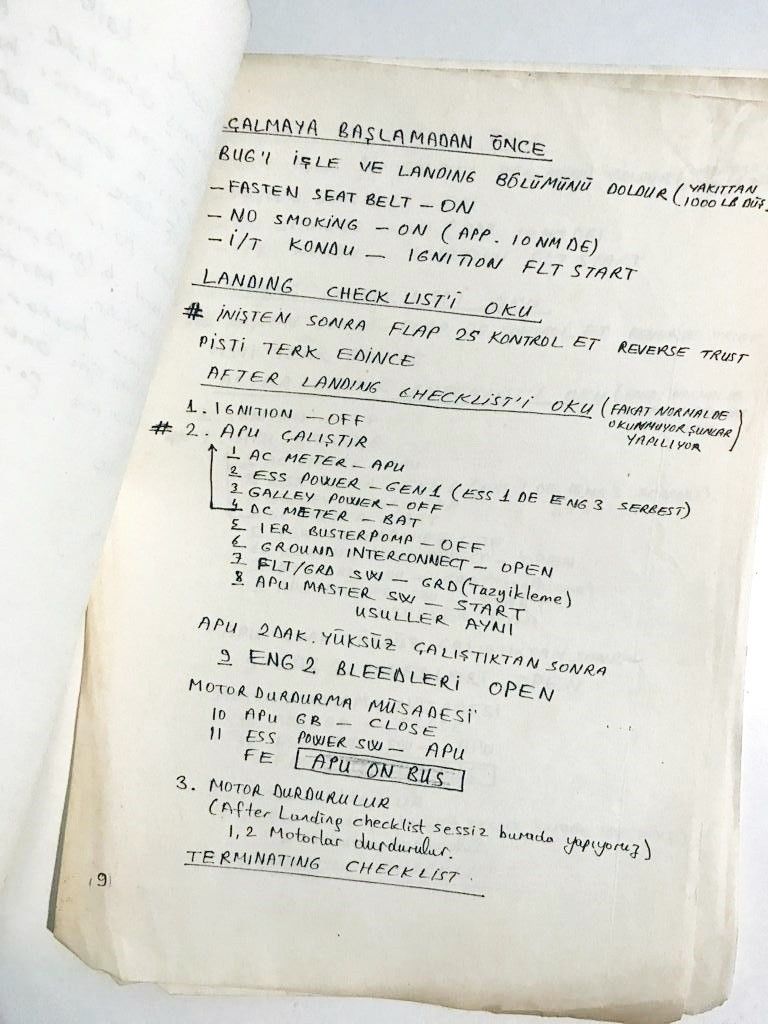 ÇALMAYA BAŞLAMADAN ÖNCE
BUG'I İŞLE VE LANDING BÖLÜMÜNÜ DOLDUR (YAKITTAN 1000 LB DÜŞ)
- FASTEN SEAT BELT - ON
- NO SMOKING - ON (APP. 10 NM DE)
- İ/T KONDU - IGNITION FLT START
LANDING CHECK LIST'İ OKU
# İNİŞTEN SONRA FLAP 25 KONTROL ET REVERSE TRUST
PİSTİ TERK EDİNCE
AFTER LANDING CHECKLİST'İ OKU (FAKAT NORMALDE OKUNMUYOR ŞUNLAR YAPILIYOR)
1. IGNITION - OFF
# 2. APU ÇALIŞTIR
1 AC METER - APU
2 ESS POWER - GEN1 (ESS 1 DE ENG 3 SERBEST)
3 GALLEY POWER - OFF
4 DC METER - BAT
5 1ER BUSTERPOMP - OFF
6 GROUND INTERCONNECT - OPEN
7 FLT/GRD SW - GRD (Tazyikleme)
8 APU MASTER SW - START
USULLER AYNI
APU 2 DAK. YÜKSÜZ ÇALIŞTIKTAN SONRA
9 ENG 2 BLEEDLERİ OPEN
MOTOR DURDURMA MÜSADESİ
10 APU GB - CLOSE
11 ESS POWER SW - APU
FE APU ON BUS
3. MOTOR DURDURULUR
(After Landing checklist sessiz burada yapıyoruz)
1, 2 Motorlar durdurulur.
TERMINATING CHECKLIST.
(9)